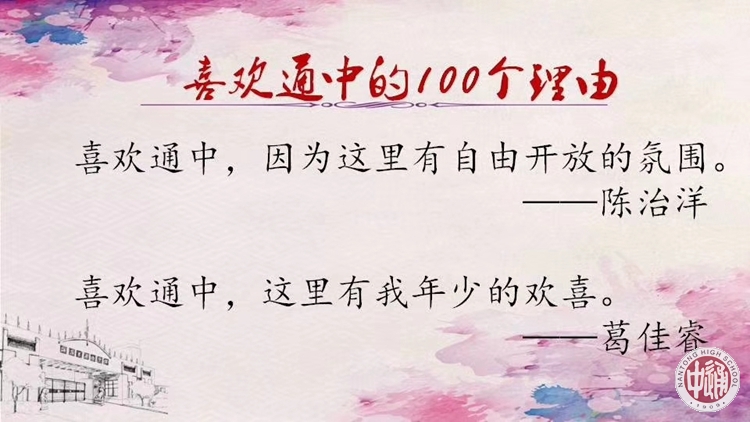 喜欢通中的100个理由
喜欢通中，因为这里有自由开放的氛围。
——陈治洋
喜欢通中，这里有我年少的欢喜。
——葛佳睿
NANTONG HIGH SCHOOL
中通
1909